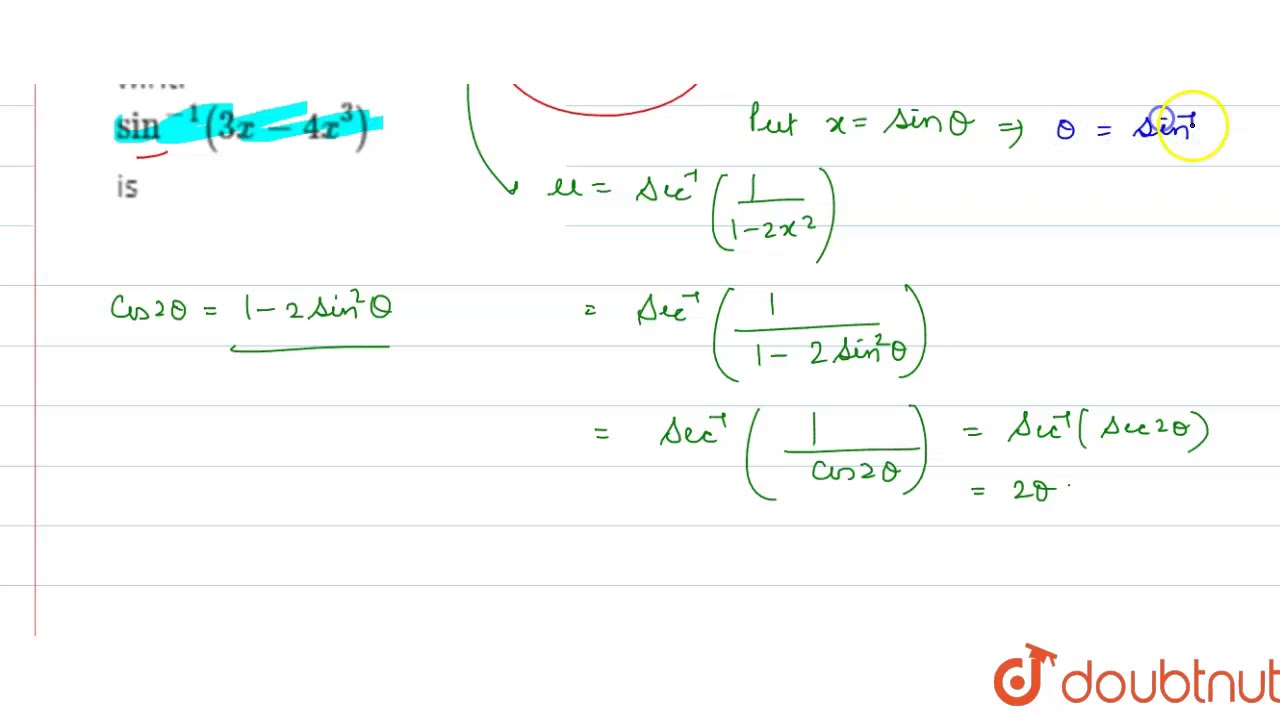 sin⁻¹(3x − 4x³)
is
Put x = sinθ ⇒ θ = sin⁻¹
u = Sec⁻¹(1/(1−2x²))
Cos2θ = 1 − 2 sin²θ
= Sec⁻¹(1/(1 − 2 sin²θ))
= Sec⁻¹(1/Cos2θ) = Sec⁻¹(Sec2θ)
= 2θ
doubtnut